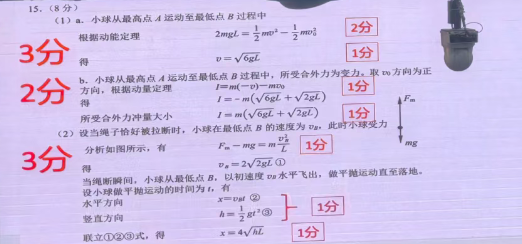 15.（8 分）
（1）a. 小球从最高点 A 运动至最低点 B 过程中
根据动能定理 2mgL = 1/2 mv² − 1/2 mv₀² 2分
3分
得 v = √6gL 1分
b. 小球从最高点 A 运动至最低点 B 过程中，所受合外力为变力。取 v₀ 方向为正
2分
方向，根据动量定理 I=m(−v)−mv₀ 1分
得 I = −m(√6gL + √2gL)
所受合外力冲量大小 I = m(√6gL + √2gL) 1分
Fₘ
（2）设当绳子恰好被拉断时，小球在最低点 B 的速度为 v_B，此时小球受力
3分
分析如图所示，有 Fₘ − mg = m v_B²/L 1分
mg
得 v_B = 2√2gL ①
当绳断瞬间，小球从最低点 B，以初速度 v_B 水平飞出，做平抛运动直至落地。
设小球做平抛运动的时间为 t，有
水平方向 x=v_Bt ②
竖直方向 h = 1/2 gt² ③ 1分
联立①②③式，得 x = 4√hL 1分